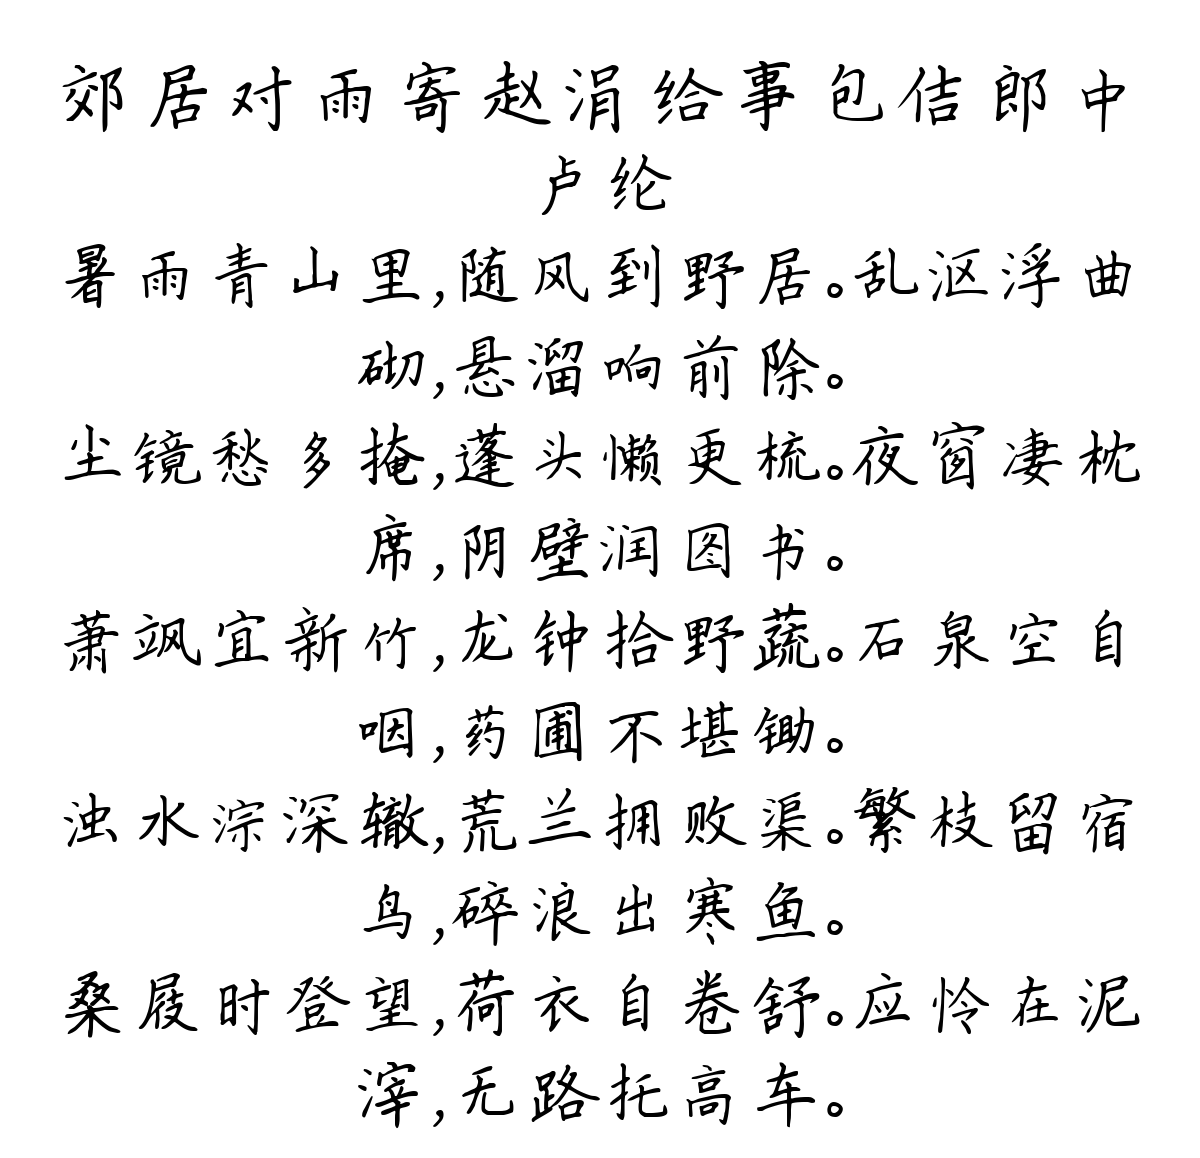 郊居对雨寄赵涓给事包佶郎中
卢纶
暑雨青山里,随风到野居。乱沤浮曲
砌,悬溜响前除。
尘镜愁多掩,蓬头懒更梳。夜窗凄枕
席,阴壁润图书。
萧飒宜新竹,龙钟拾野蔬。石泉空自
咽,药圃不堪锄。
浊水淙深辙,荒兰拥败渠。繁枝留宿
鸟,碎浪出寒鱼。
桑屐时登望,荷衣自卷舒。应怜在泥
滓,无路托高车。